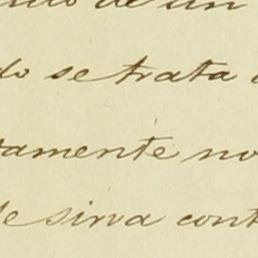 de un
do se trata
amente no
se sirva cont